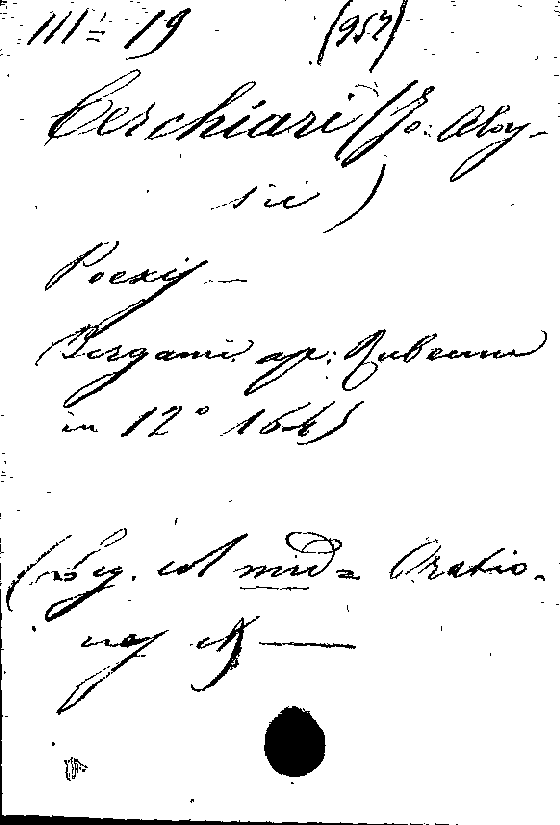 III = 19 (957)
Cerchiari (Jo: Aloy-
sii)
Poexis —
Bergami ap: Rubeum
in 12° 1645
(Leg. est mid= Oratio-
nes et —